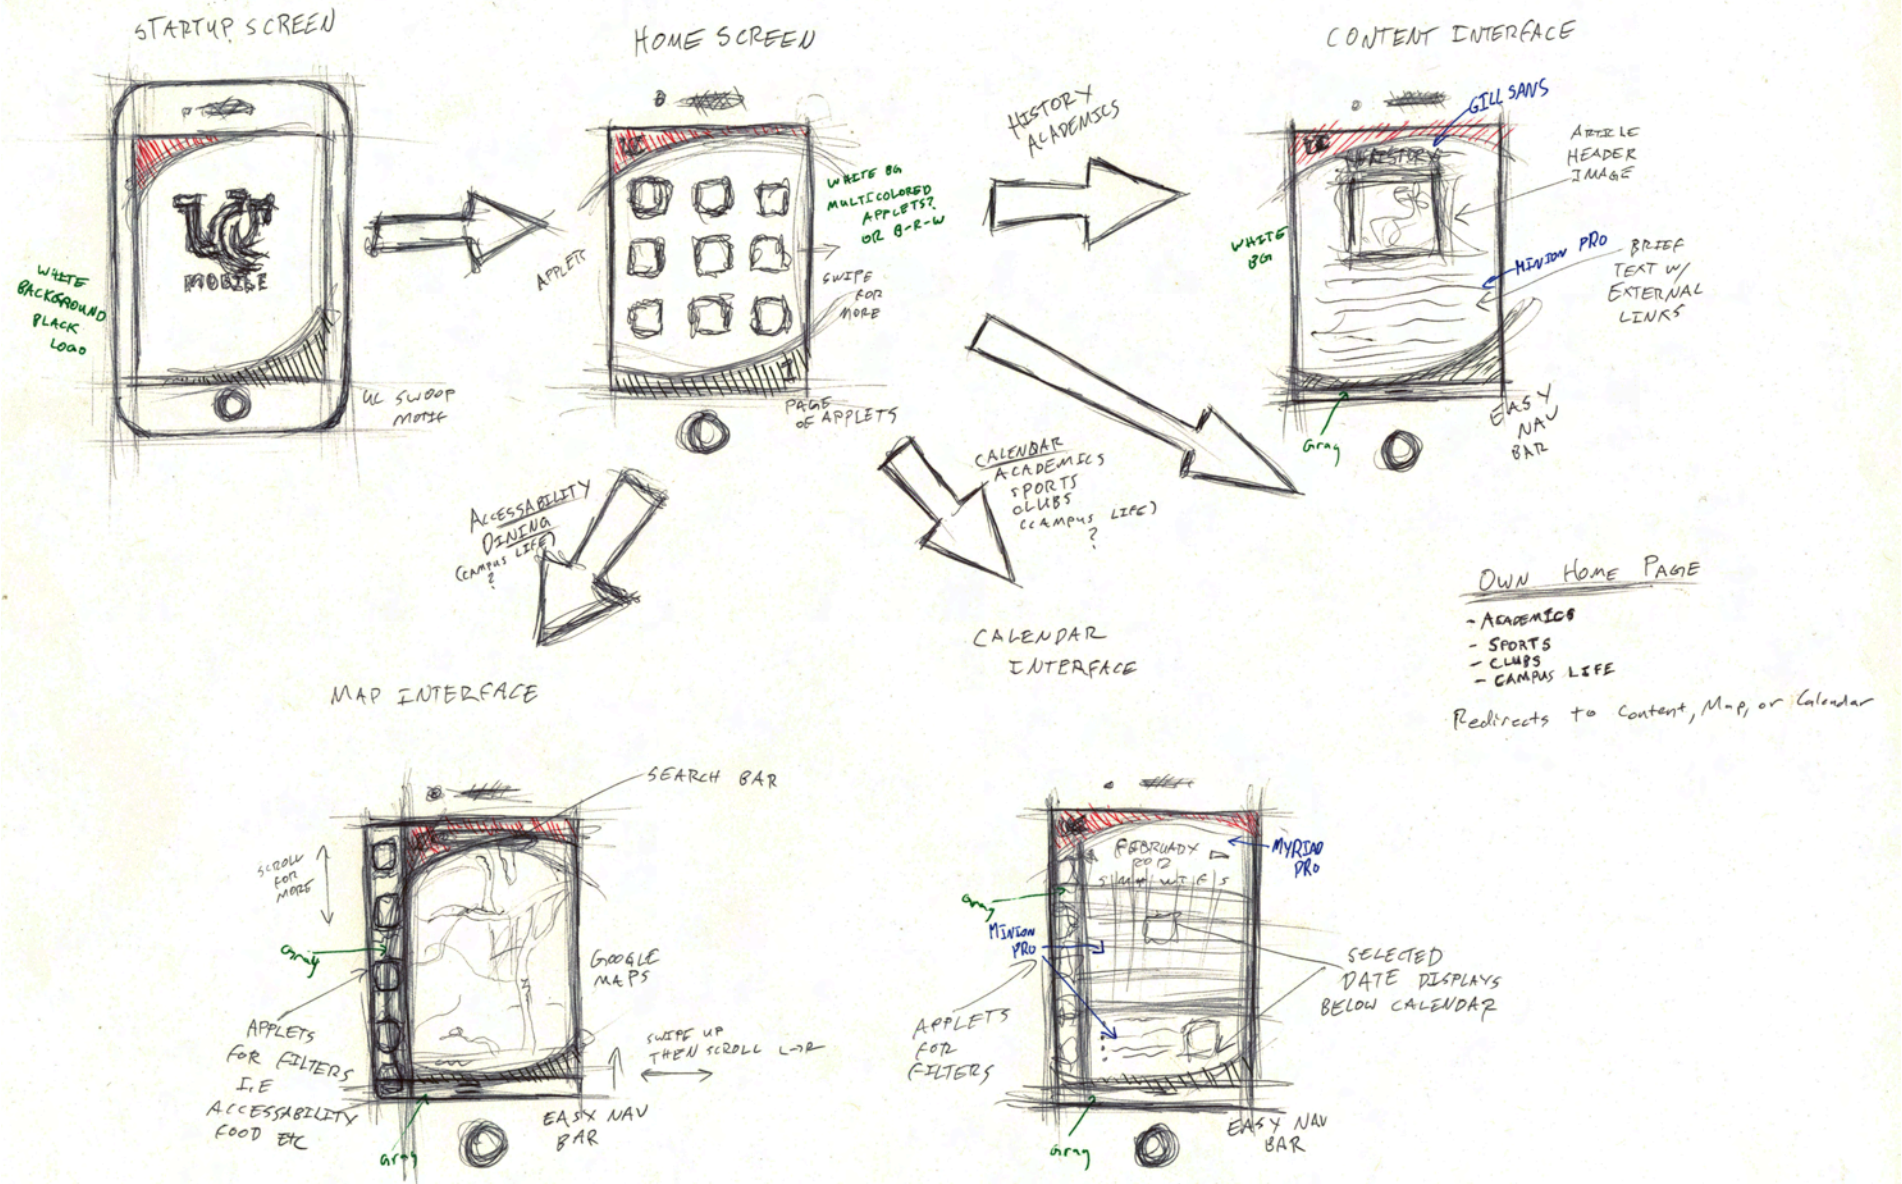 STARTUP SCREEN
UC
MOBILE
WHITE
BACKGROUND
BLACK
LOGO
UC SWOOP
MOTIF
HOME SCREEN
UC
APPLETS
WHITE BG
MULTICOLORED
APPLETS?
OR B-R-W
SWIPE
FOR
MORE
PAGE
OF APPLETS
HISTORY
ACADEMICS
CONTENT INTERFACE
GILL SANS
UC
HISTORY
ARTICLE
HEADER
IMAGE
WHITE
BG
MINION PRO
BRIEF
TEXT W/
EXTERNAL
LINKS
Gray
EASY
NAV
BAR
ACCESSABILITY
DINING
(CAMPUS LIFE)
?
CALENDAR
ACADEMICS
SPORTS
CLUBS
(CAMPUS LIFE)
?
OWN HOME PAGE
- ACADEMICS
- SPORTS
- CLUBS
- CAMPUS LIFE
Redirects to Content, Map, or Calendar
MAP INTERFACE
SEARCH BAR
SCROLL
FOR
MORE
Gray
GOOGLE
MAPS
APPLETS
FOR FILTERS
I.E
ACCESSABILITY
FOOD ETC
SWIPE UP
THEN SCROLL L→R
EASY NAV
BAR
Gray
CALENDAR
INTERFACE
FEBRUARY
2012
S M T W T F S
MYRIAD
PRO
Gray
MINION
PRO
APPLETS
FOR
FILTERS
SELECTED
DATE DISPLAYS
BELOW CALENDAR
EASY NAV
BAR
Gray